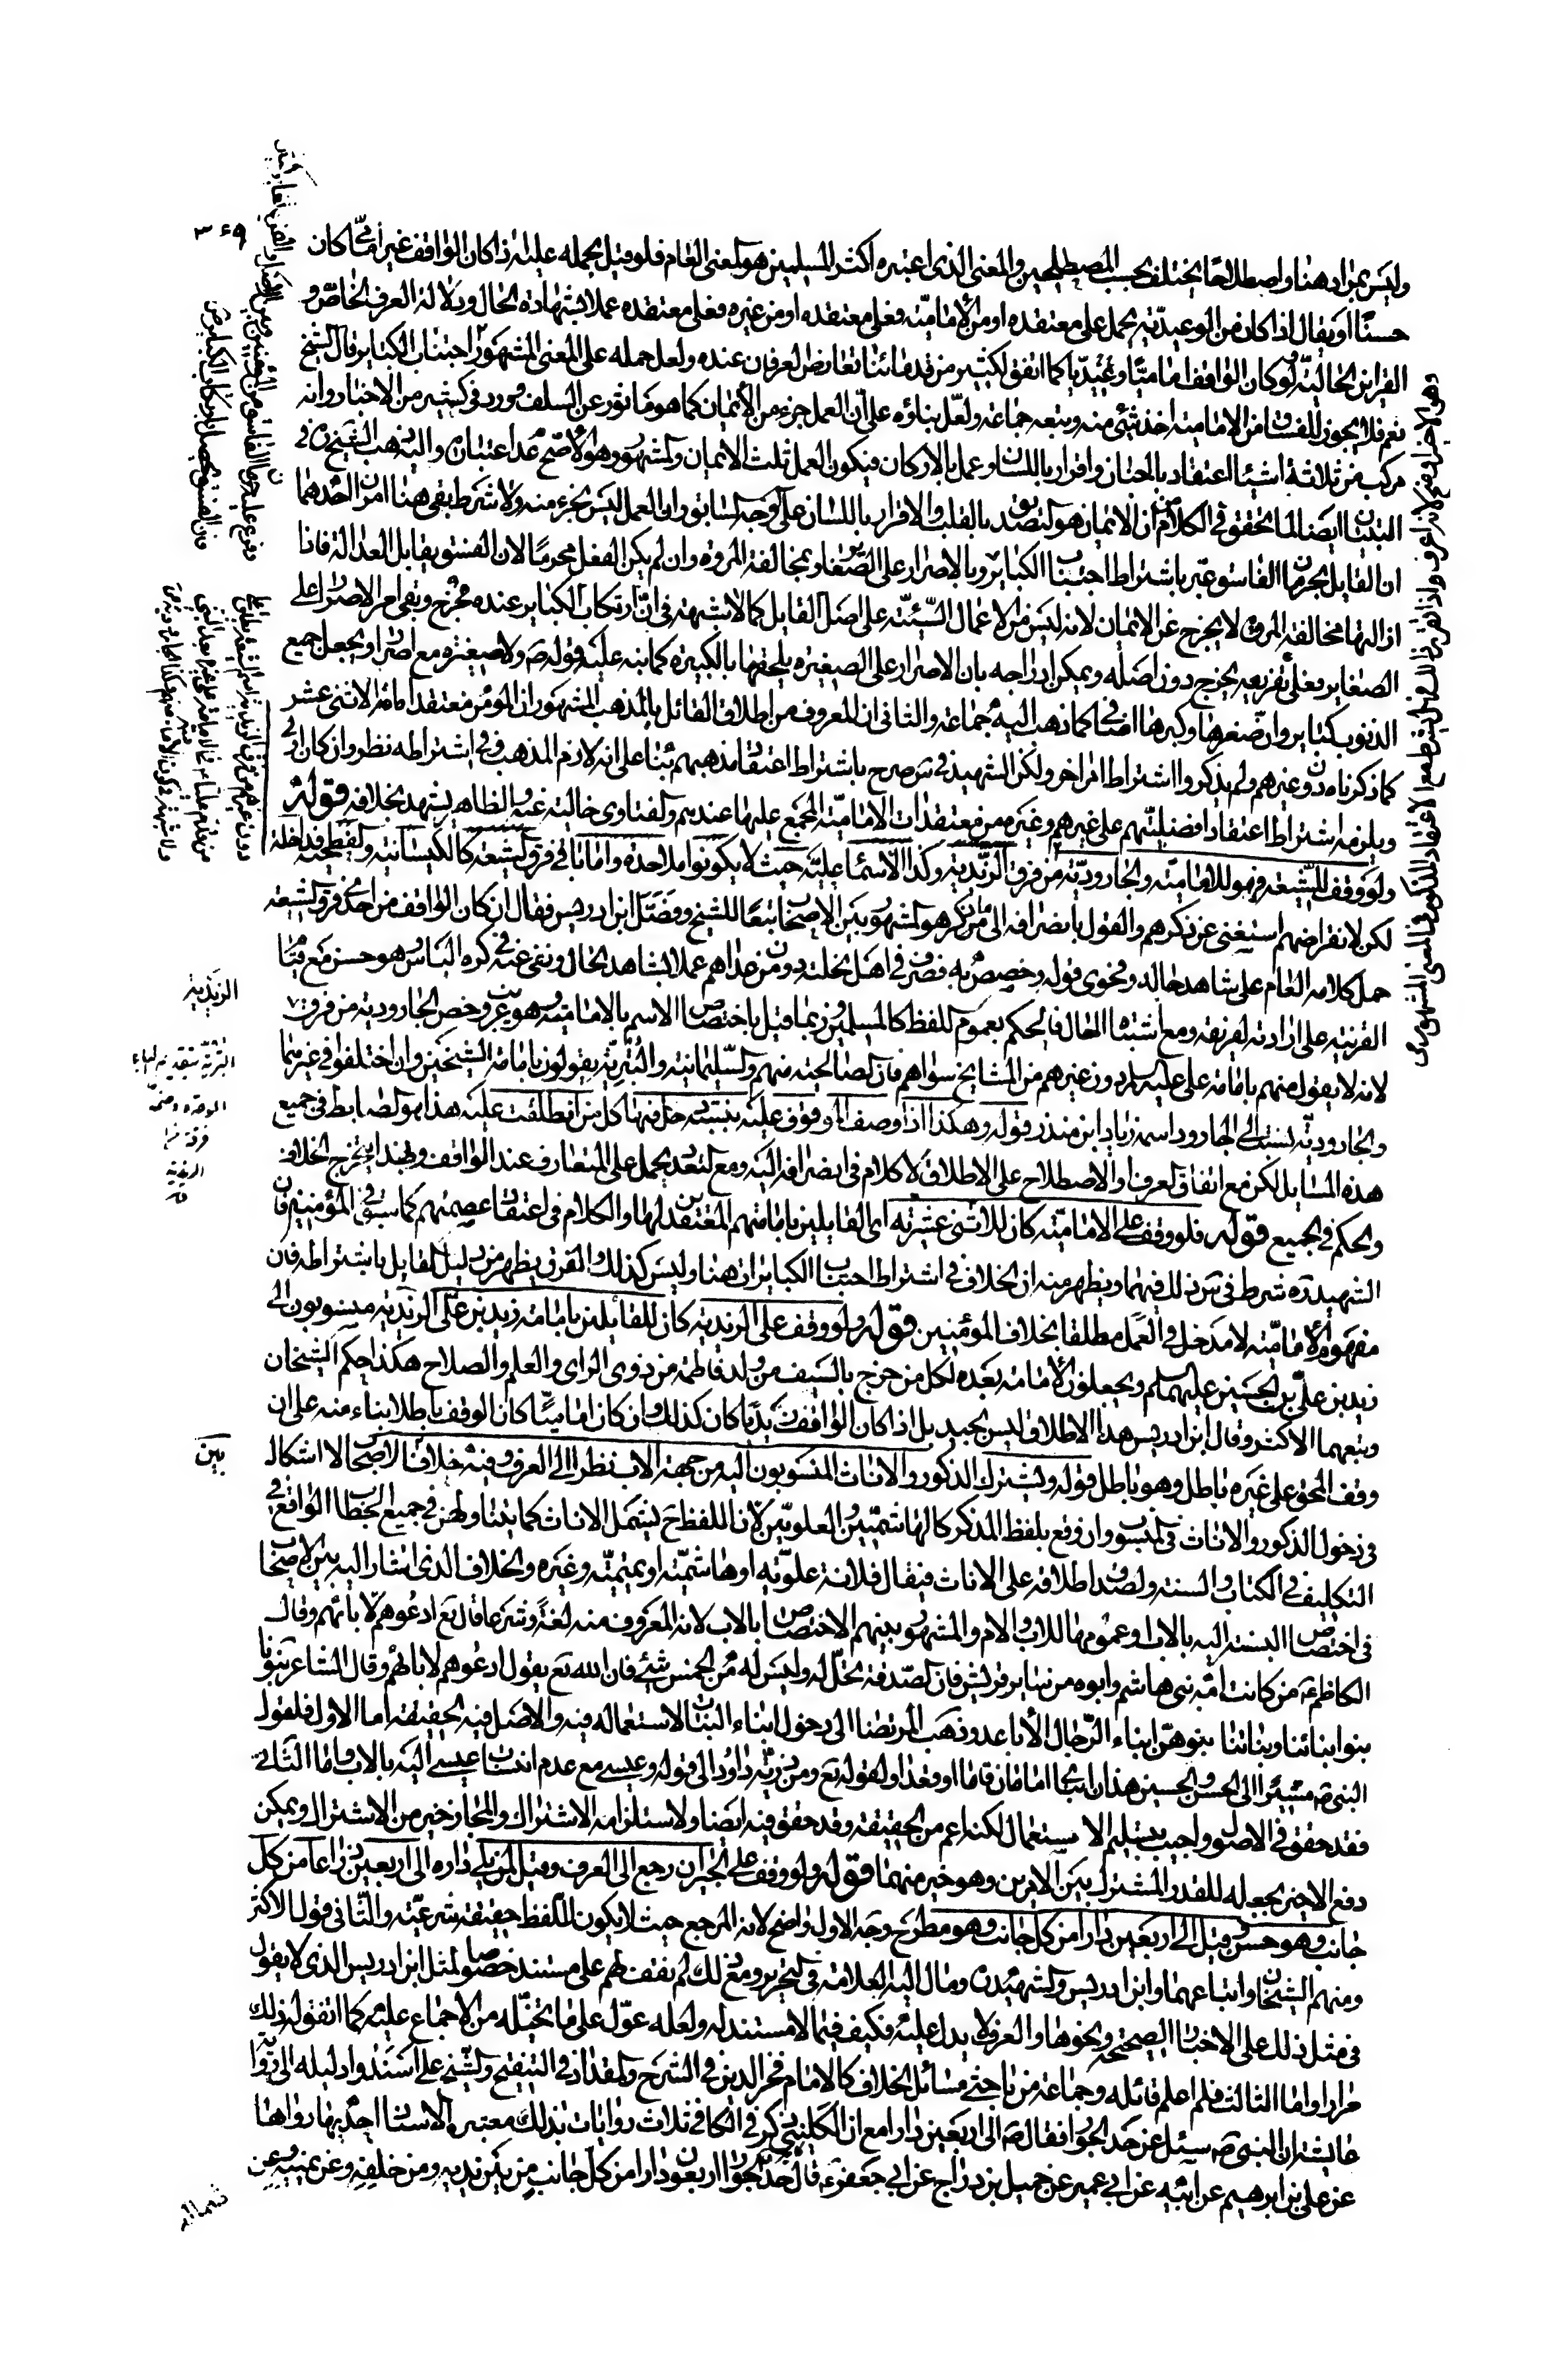 وليس بمراد هنا واصطلاحا يختلف بحسب المصطلحين والمعنى الذى اعتبره اكثر المسلمين هو المعنى العام فلو قيل بحمله عليه اذا كان الواقف غير امامى كان
حسنا او يقال اذا كان من الوعيدية يحمل على معتقده او من الامامية فعلى معتقده او من غيره فعلى معتقده عملا بشهادة الحال ودلالة العرف الخاص و
القراين الحالية ولو كان الواقف اماميا وعيديا كما اتفق لكثير من قدمائنا تعارض العرفان عنده ولعل حمله على المعنى المشهور اجتناب الكباير قال الشيخ
نعم فلا يجوز للفساق من الامامية اخذ شئ منه وتبعه جماعة ولعل بناؤه على ان العمل جزء من الايمان كما هو مأثور عن السلف وورد في كثير من الاخبار وانه
مركب من ثلاثة اشياء اعتقاد بالجنان واقرار باللسان وعمل بالاركان فيكون العمل ثلث الايمان والمشهور وهو الاصح عدم اعتباره واليه ذهب الشيخ في
التبيان ايضا لما تحقق في الكلام من ان الايمان هو التصديق بالقلب والاقرار باللسان على الوجه السابق وان العمل ليس بجزء منه ولا شرط بقى هنا امران احدهما
ان القايل بحرمان الفاسق عبر باشتراط اجتناب الكباير وبالاصرار على الصغاير وبمخالفة المروة وان لم يكن الفعل محرما لان الفسق يقابل العدالة فاذا
ازالتها مخالفة المروة لا يخرج عن الايمان لانه ليس من الاعمال السيئة على اصل القايل كما لا شبهة في ان ارتكاب الكباير عنده مخرج وبقى امر الاصرار على
الصغاير فعلى تفريعه يخرج دون اصله ويمكن ادراجه بان الاصرار على الصغيرة يلحقها بالكبيرة كما نبه عليه قوله ص ولا صغيرة مع اصرار او يجعل جميع
الذنوب كباير وان صغرها وكبرها اضافى كما ذهب اليه جماعة والثانى ان المعروف من اطلاق القائل بالمذهب المشهور ان المؤمن معتقد امامة الاثنى عشر
كما ذكرناه دون غيرهم ولم يذكروا اشتراط امر اخر ولكن الشهيد في شرح صرح باشتراط اعتقاد مذهبهم بناء على انه لازم المذهب وفي اشتراطه نظر وان كان اولى
ويلزمه اشتراط اعتقاد افضليتهم على غيرهم وغيره من معتقدات الامامية المجمع عليها عندهم والفتاوى خالية عنه والظاهر يشهد بخلافه قوله
ولو وقف للشيعة فهو للامامية والجارودية من فرق الزيدية وكذا الاسماعيلية حيث لا يكونوا ملاحدة واما باقى فرق الشيعة كالكيسانية والفطحية فداخلة
لكن لانقراضهم استغنى عن ذكرهم والقول بانصرافه الى من ذكر هو المشهور بين الاصحاب تبعا للشيخ وفصل ابن ادريس فقال ان كان الواقف من احدى فرق الشيعة
حمل كلامه العام على شاهد حاله وفحوى قوله وخصص به فصرف في اهل نحلته دون من عداهم عملا بشاهد الحال ونفى عنه في كره الباس وهو حسن مع قيام
القرينة على ارادته لفريقه ومع اشتباه الحال فالحكم بعموم اللفظ كالمسلمين وربما قيل باختصاص الاسم بالامامية وهو غريب وخص الجارودية من فرق
لانه لا يقول منهم بامامة على عليه السلام دون غيرهم من المشايخ سواهم فان الصالحية منهم والسليمانية والبترية يقولون بامامة الشيخين وان اختلفوا في غيرهما
والجارودية نسبة الى الجارود اسمه زياد ابن منذر قوله وهكذا اذا وصف الموقوف عليه بنسبة دخل فيها كل من انطلقت عليه هذا هو الضابط في جميع
هذه المسايل لكن مع اتفاق العرف او الاصطلاح على الاطلاق لا كلام في انصرافه اليه ومع التعدد يحمل على المتعارف عند الواقف وبهذا يتخرج الخلاف
والحكم في الجميع قوله فلو وقف على الامامية كان للاثنى عشرية اى القايلين بامامتهم المعتقدين لها والكلام في اعتقاد عصمتهم كما سبق في المؤمنين فان
الشهيد ره شرط في شرح ذلك فيهما ويظهر منه ان الخلاف في اشتراط اجتناب الكباير ات هنا وليس كذلك والفرق يظهر من دليل القايل باشتراطه فان
مفهوم الامامية لا مدخل للعمل فيه مطلقا بخلاف المؤمنين قوله ولو وقف على الزيدية كان للقايلين بامامة زيد بن على الزيدية منسوبون الى
زيد بن على بن الحسين عليهما السلم ويجعلون الامامة بعده لكل من خرج بالسيف من ولد فاطمة من ذوى الراى والعلم والصلاح هكذا حكم الشيخان
وتبعهما الاكثر وقال ابن ادريس هذا الاطلاق ليس بجيد بل اذا كان الواقف زيديا كان كذلك وان كان اماميا كان الوقف باطلا بناء منه على ان
وقف المحق على غيره باطل وهو باطل قوله ويشترك الذكور والاناث المنسوبون اليه من جهة الاب نظرا الى العرف وفيه خلاف للاصحاب لا اشكال
في دخول الذكور والاناث في المنسوب وان وقع بلفظ المذكر كالهاشميين والعلويين لان اللفظ ح يشمل الاناث كما يتناولهن في جميع الخطاب الواقع في
التكليف في الكتاب والسنة ولصدق اطلاقه على الاناث فيقال فلانة علوية او هاشمية او تميمية وغيره والخلاف الذى اشار اليه بين الاصحاب
في اختصاص النسبة اليه بالاب وعمومها للاب والام والمشهور بينهم الاختصاص بالاب لانه المعروف منه لغة وشرعا قال تع ادعوهم لابائهم وقال
الكاظم ع من كانت امه من بنى هاشم وابوه من ساير قريش فان الصدقة تحل له وليس له من الخمس شئ فان الله تع يقول ادعوهم لابائهم وقال الشاعر بنونا
بنو ابنائنا وبناتنا بنوهن ابناء الرجال الاباعد وذهب المرتضى الى دخول ابناء البنات لاستعماله فيه والاصل فيه الحقيقة اما الاول فلقول
النبى ص مشيرا الى الحسن والحسين هذان ابناى امامان قاما او قعدا ولقوله تع ومن ذريته داود الى قوله وعيسى مع عدم انتساب عيسى اليه بالاب واما الثانى
فقد حقق في الاصول واجيب بتسليم الاستعمال لكنه اعم من الحقيقة وقد حقق فيه ايضا ولاستلزامه الاشتراك والمجاز خير من الاشتراك ويمكن
دفع الاخير بجعله للقدر المشترك بين الامرين وهو خير منهما قوله ولو وقف على الجيران رجع الى العرف وقيل لمن يلى داره الى اربعين ذراعا من كل
جانب وهو حسن وقيل الى اربعين دارا من كل جانب وهو مطرح وجه الاول واضح لانه المرجع حيث لا يكون للفظ حقيقة شرعية والثانى قول الاكثر
ومنهم الشيخان واتباعهما وابن ادريس والشهيدين ومال اليه العلامة في التحرير ومع ذلك لم نقف لهم على مستند خصوصا لمثل ابن ادريس الذى لا يعول
في مثل ذلك على الاخبار الصحيحة ونحوها والعرف لا يدل عليه فكيف فيما لا مستند له ولعله عول على ما تخيله من الاجماع عليه كما اتفق له ذلك
مرارا واما الثالث فلم اعلم قائله وجماعة من باحثى مسائل الخلاف كالامام فخر الدين في الشرح والمقداد في التنقيح والشيخ على اسندوا دليله الى رواية
عايشة ان النبى ص سئل عن حد الجوار فقال ص الى اربعين دارا مع ان الكلينى ذكر في الكافى ثلاث روايات بذلك معتبرة الاسناد احديها رواها
عن على بن ابرهيم عن ابيه عن ابى عمير عن جميل بن دراج عن ابى جعفر ع قال حد الجوار اربعون دارا من كل جانب من بين يديه ومن خلفه وعن يمينه وعن
شماله
الزيدية
بين